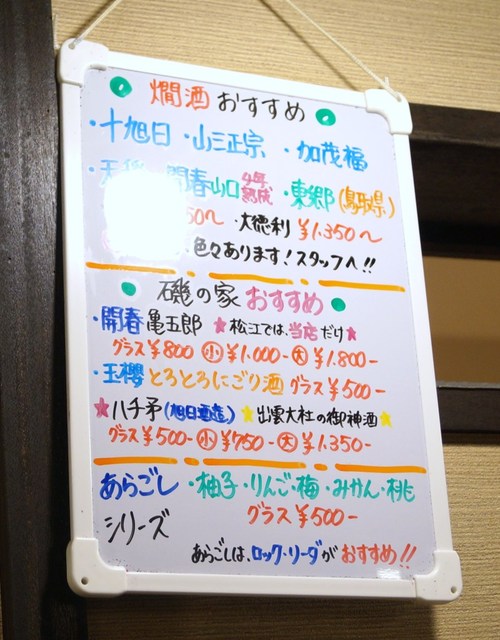 燗酒 おすすめ
・十旭日 ・山三正宗 ・加茂福
開春山口 4年熟成 ・東郷(鳥取県)
50〜 ・大徳利 ¥1.350〜
色々あります!スタッフへ!!
磯の家 おすすめ
・開春 亀五郎 ★松江では、当店だけ★
グラス¥800 小¥1.000- 大¥1.800-
・玉櫻 とろとろにごり酒 グラス¥500-
★八千矛(旭日酒造)★出雲大社の御神酒★
グラス¥500- 小¥750- 大¥1.350-
あらごし ・柚子・りんご・梅・みかん・桃
シリーズ グラス¥500-
あらごしは、ロック・ソーダがおすすめ!!